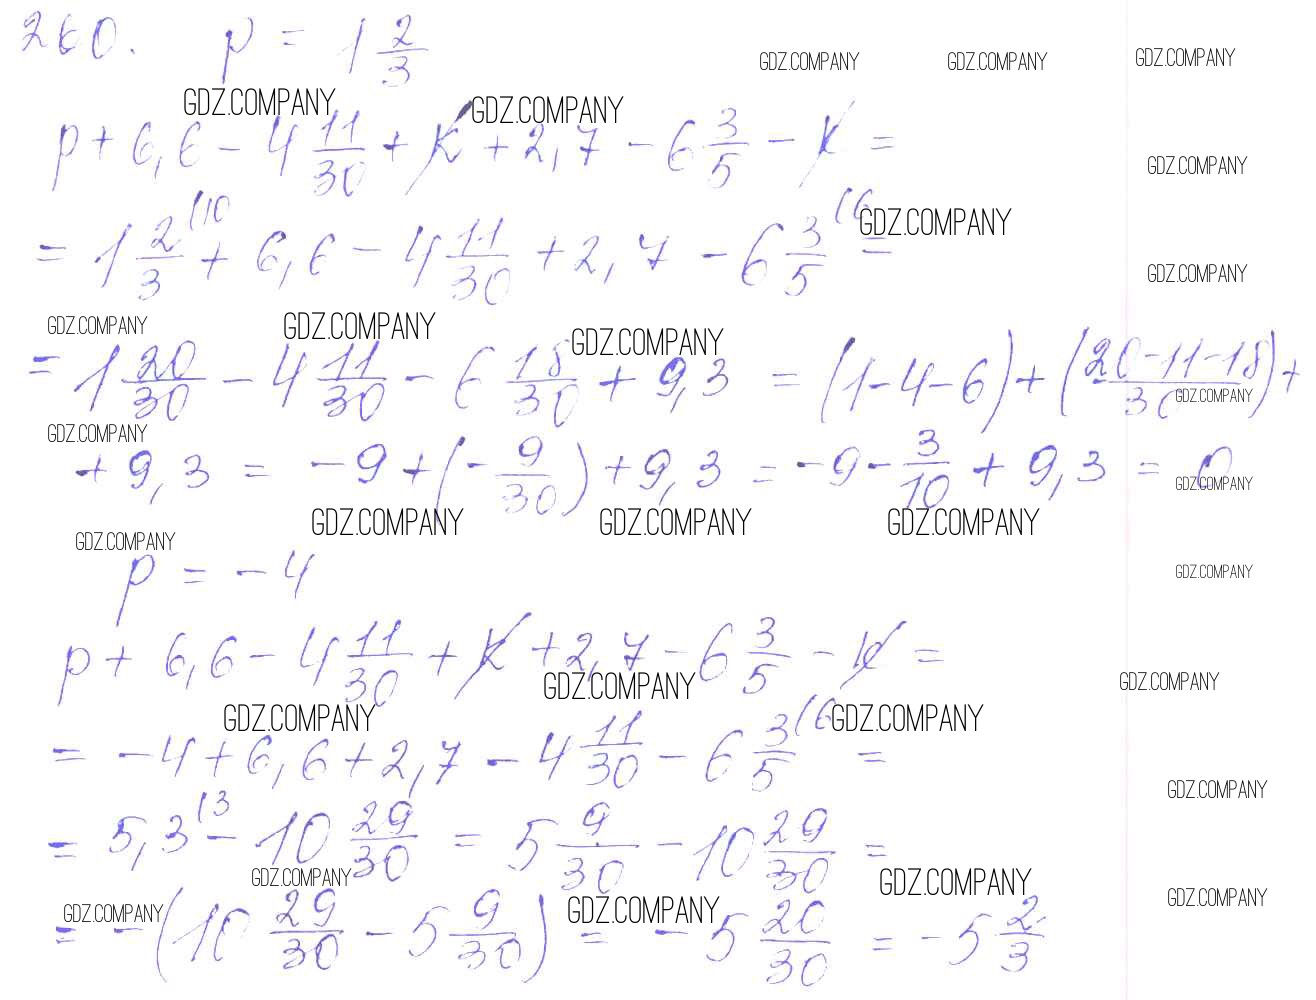 260. p = 1 2/3
GDZ.COMPANY GDZ.COMPANY GDZ.COMPANY
GDZ.COMPANY GDZ.COMPANY
p + 6,6 - 4 11/30 + k + 2,7 - 6 3/5 - k =
GDZ.COMPANY
= 1 2/3 (10 + 6,6 - 4 11/30 + 2,7 - 6 3/5 (6 =
GDZ.COMPANY
GDZ.COMPANY
GDZ.COMPANY GDZ.COMPANY GDZ.COMPANY
= 1 20/30 - 4 11/30 - 6 18/30 + 9,3 = (1-4-6) + (20-11-18/30) +
GDZ.COMPANY
GDZ.COMPANY
+ 9,3 = -9 + (-9/30) + 9,3 = -9 - 3/10 + 9,3 = 0
GDZ.COMPANY
GDZ.COMPANY GDZ.COMPANY GDZ.COMPANY
GDZ.COMPANY
p = -4
GDZ.COMPANY
p + 6,6 - 4 11/30 + k + 2,7 - 6 3/5 - k =
GDZ.COMPANY GDZ.COMPANY
GDZ.COMPANY GDZ.COMPANY
= -4 + 6,6 + 2,7 - 4 11/30 - 6 3/5 (6 =
GDZ.COMPANY
= 5,3 (3 - 10 29/30 = 5 9/30 - 10 29/30 =
GDZ.COMPANY GDZ.COMPANY
GDZ.COMPANY
GDZ.COMPANY GDZ.COMPANY
= -(10 29/30 - 5 9/30) = -5 20/30 = -5 2/3